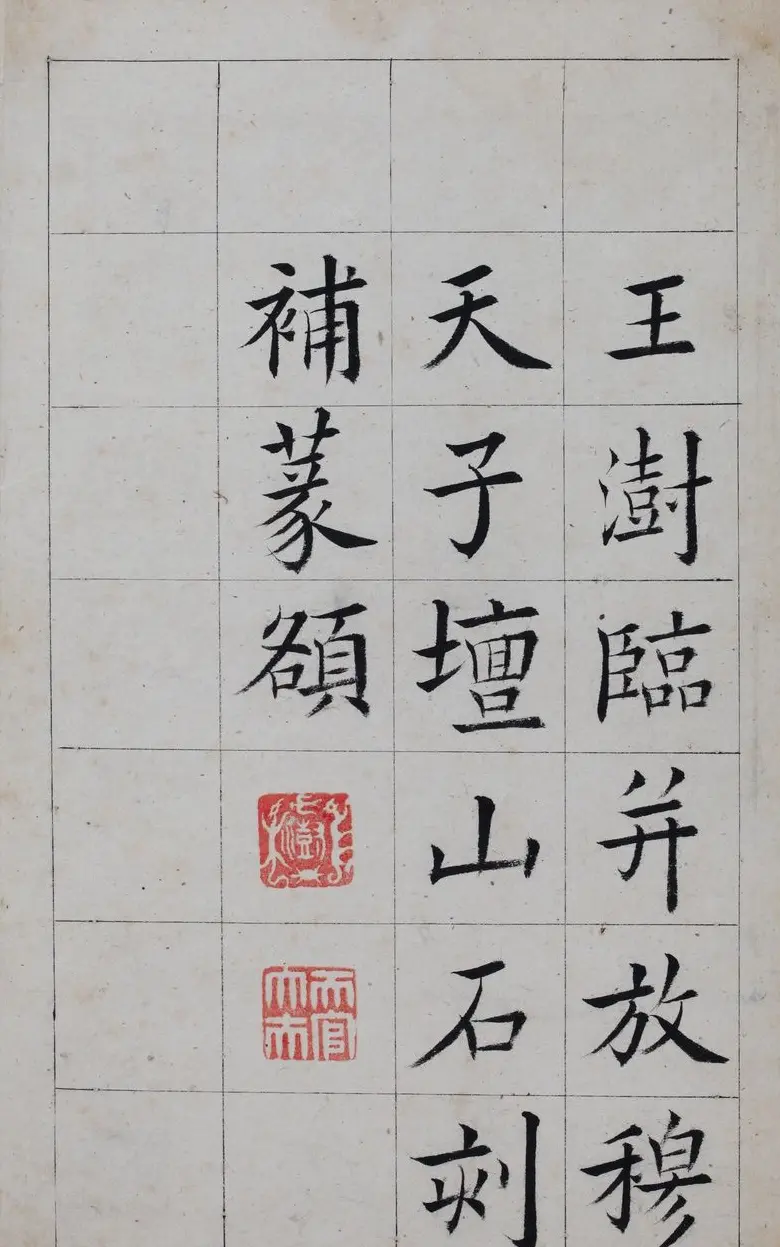 王澍臨并放穆
天子壇山石刻
補篆額